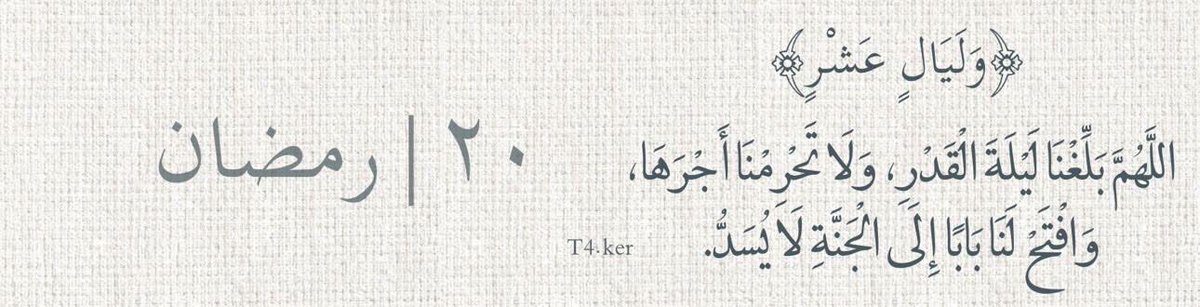 ﴿وَلَيَالٍ عَشْرٍ﴾
اللَّهُمَّ بَلِّغْنَا لَيْلَةَ الْقَدْرِ، وَلَا تَحْرِمْنَا أَجْرَهَا،
وَافْتَحْ لَنَا بَابًا إِلَى الْجَنَّةِ لَا يُسَدُّ.
٢٠ | رمضان
T4.ker